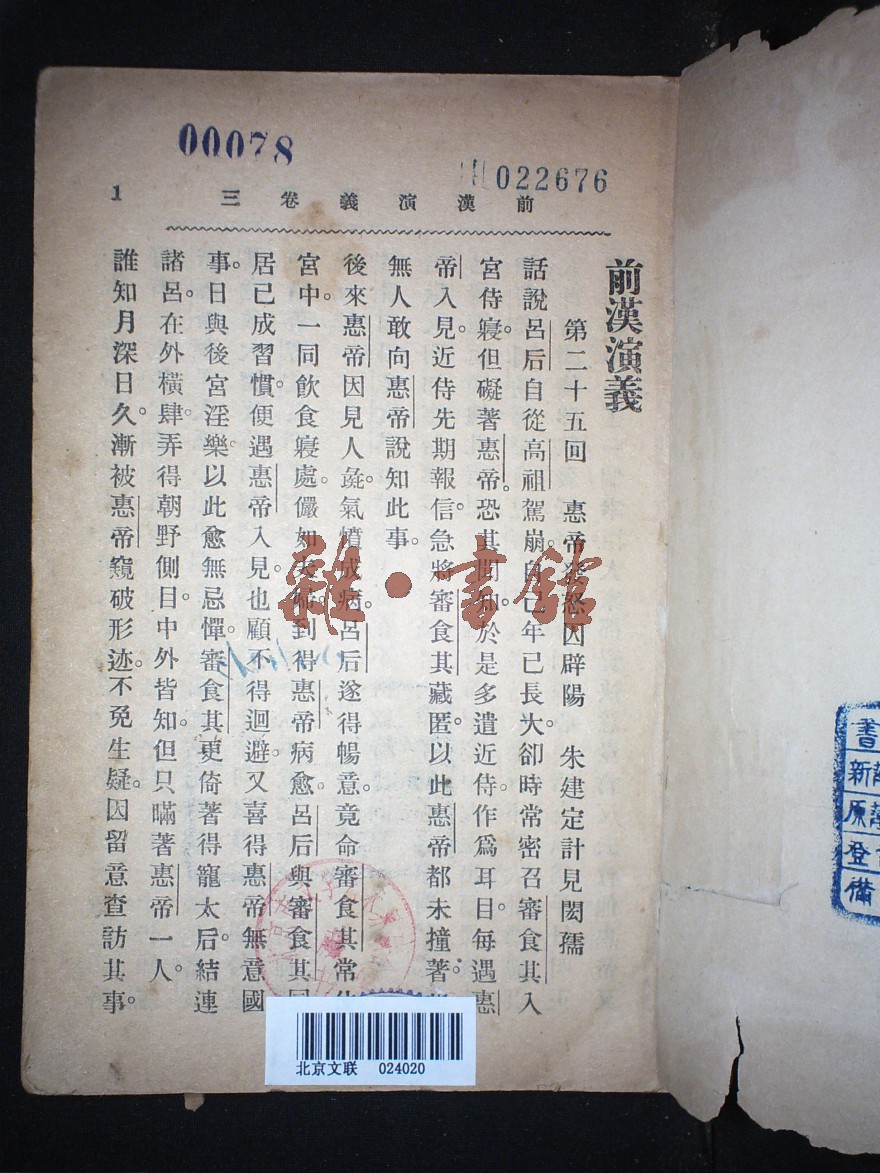 00078
022676
前漢演義卷三
1
前漢演義
第二十五回 惠帝發怒囚辟陽 朱建定計見閎孺
話說呂后自從高祖駕崩。自己年已長大。卻時常密召審食其入
宮侍寢。但礙著惠帝。恐其聞知。於是多遣近侍。作爲耳目。每遇惠
帝入見。近侍先期報信。急將審食其藏匿。以此惠帝都未撞著。
無人敢向惠帝說知此事。
後來惠帝因見人彘。氣憤成病。呂后遂得暢意。竟命審食其常
宮中。一同飲食寢處。儼如夫婦。到得惠帝病愈。呂后與審食其
居已成習慣。便遇惠帝入見。也顧不得迴避。又喜得惠帝無意國
事。日與後宮淫樂。以此愈無忌憚。審食其更倚著得寵太后。結連
諸呂。在外橫肆。弄得朝野側目。中外皆知。但只瞞著惠帝一人。
誰知月深日久。漸被惠帝窺破形迹。不免生疑。因留意查訪其事。
雜·書館
北京文联 024020
書
新
原
登
備